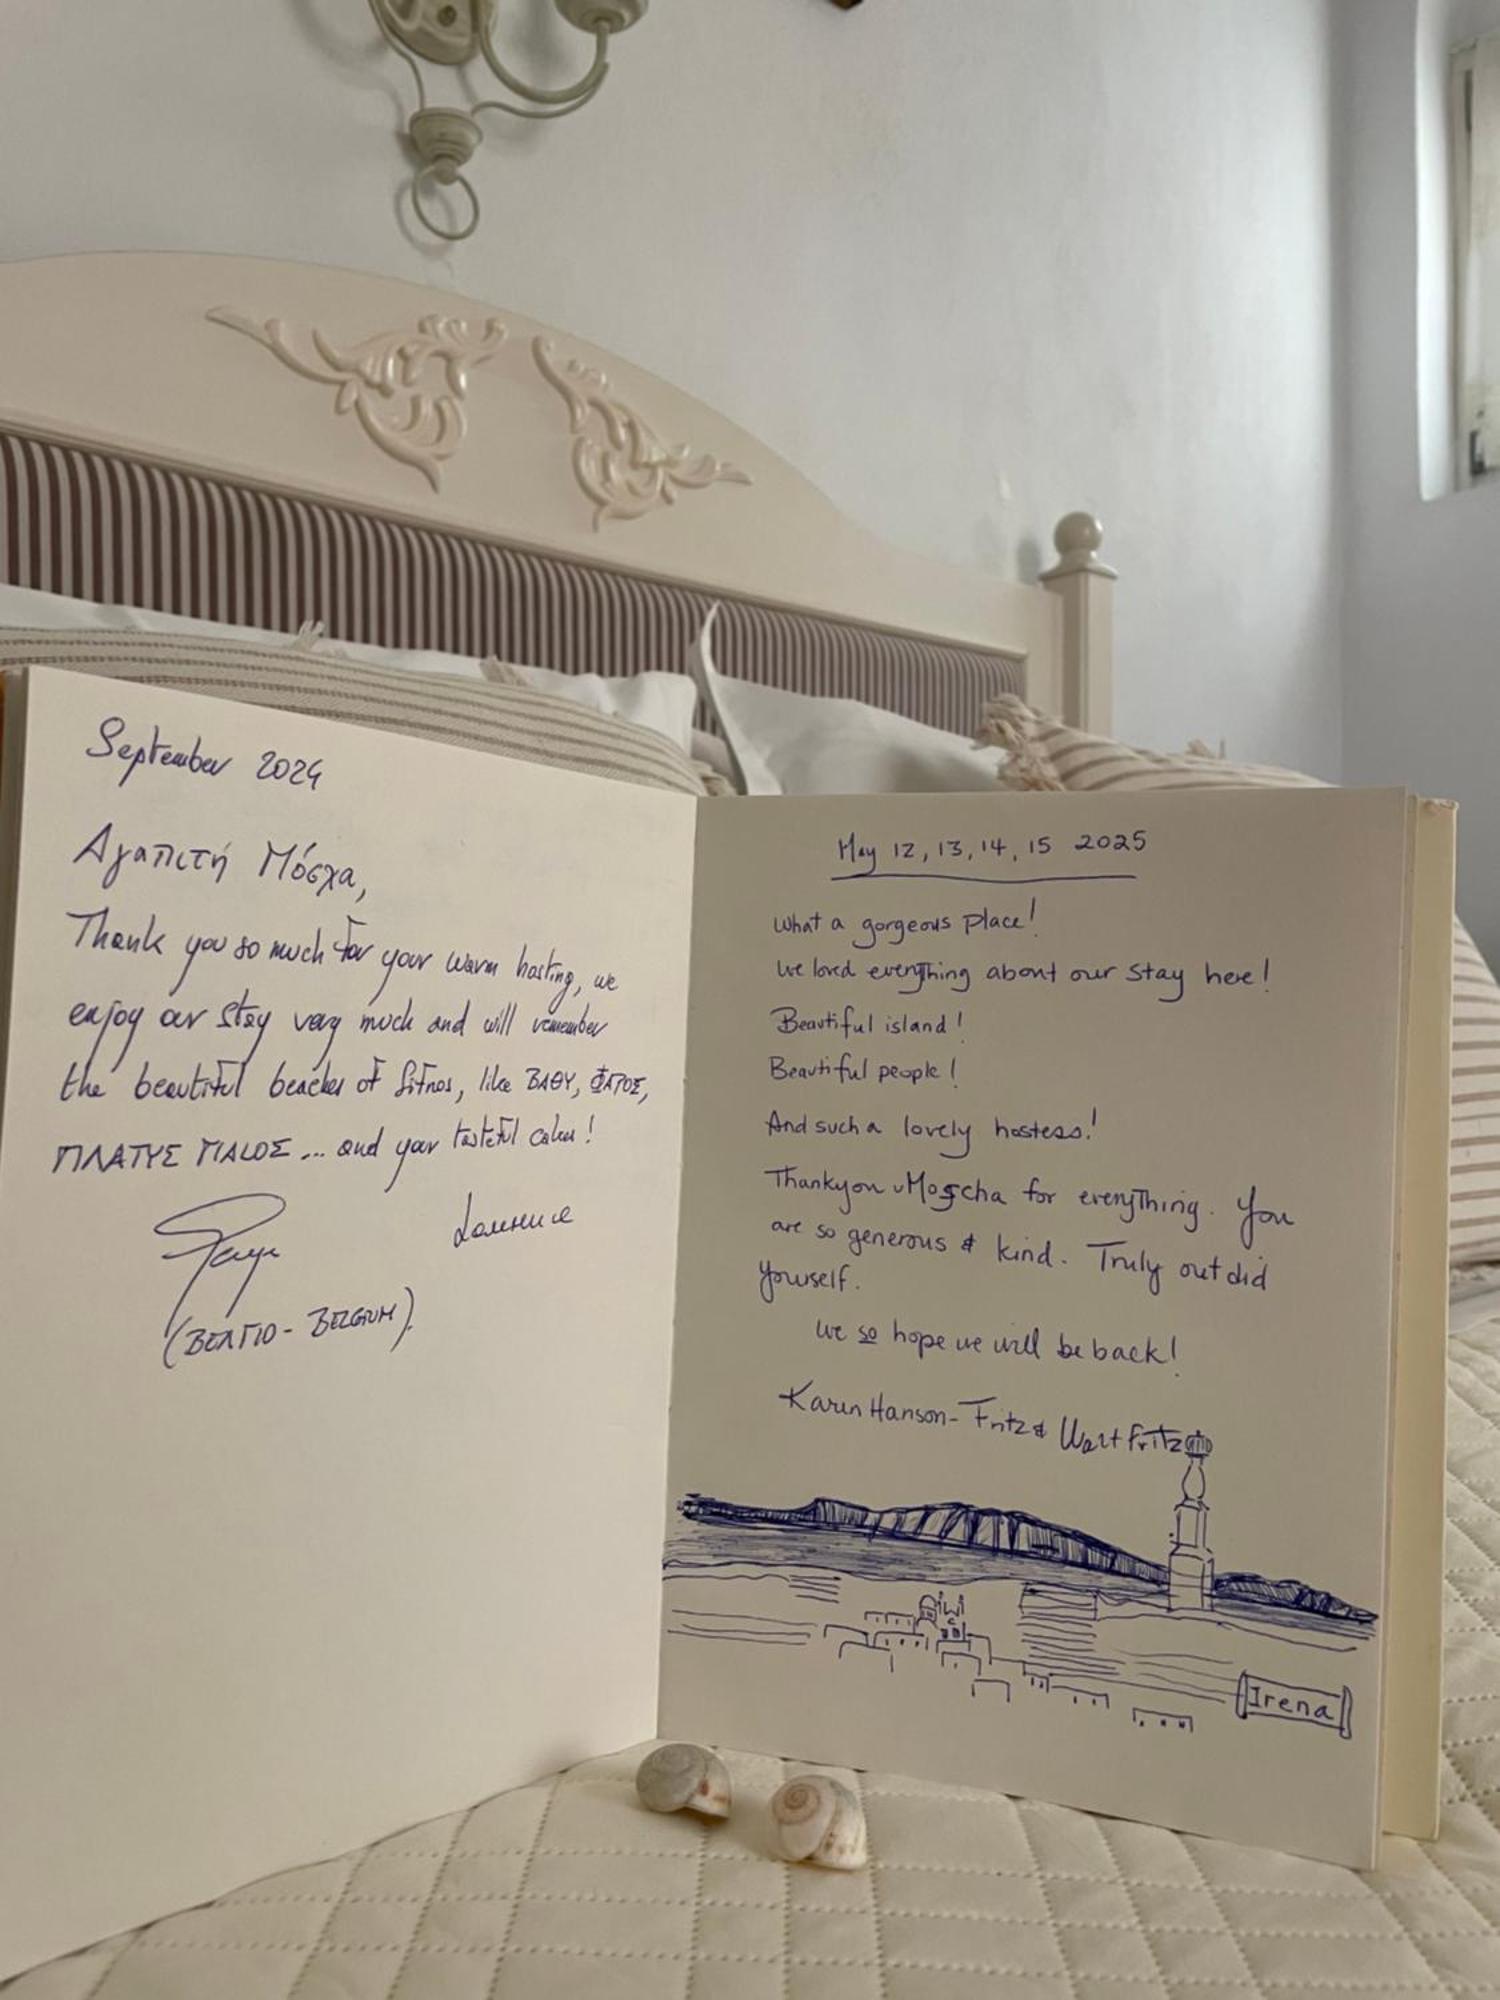 September 2024
Αγαπιτή Μόσχα,
Thank you so much for your warm hosting, we
enjoy our stay very much and will remember
the beautiful beaches of Sifnos, like ΒΑΘΥ, ΦΑΡΟΣ,
ΠΛΑΤΥΣ ΓΙΑΛΟΣ ... and your tasteful cakes!
(ΒΕΛΓΙΟ - BELGIUM).
May 12, 13, 14, 15 2025
What a gorgeous place!
We loved everything about our stay here!
Beautiful island!
Beautiful people!
And such a lovely hostess!
Thankyou Moscha for everything. You
are so generous & kind. Truly out did
yourself.
We so hope we will be back!
Karen Hanson-Fritz & Walt Fritz
Irena